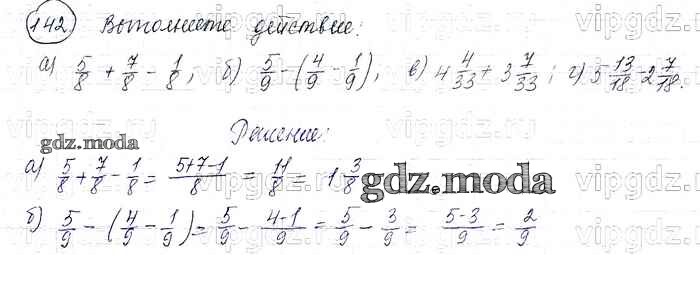 142 Выполните действие:
а) 5/8 + 7/8 - 1/8; б) 5/9 - (4/9 - 1/9); в) 4 4/33 + 3 7/33; г) 5 13/18 - 2 7/18.
Решение:
gdz.moda
а) 5/8 + 7/8 - 1/8 = (5+7-1)/8 = 11/8 = 1 3/8
gdz.moda
б) 5/9 - (4/9 - 1/9) = 5/9 - (4-1)/9 = 5/9 - 3/9 = (5-3)/9 = 2/9